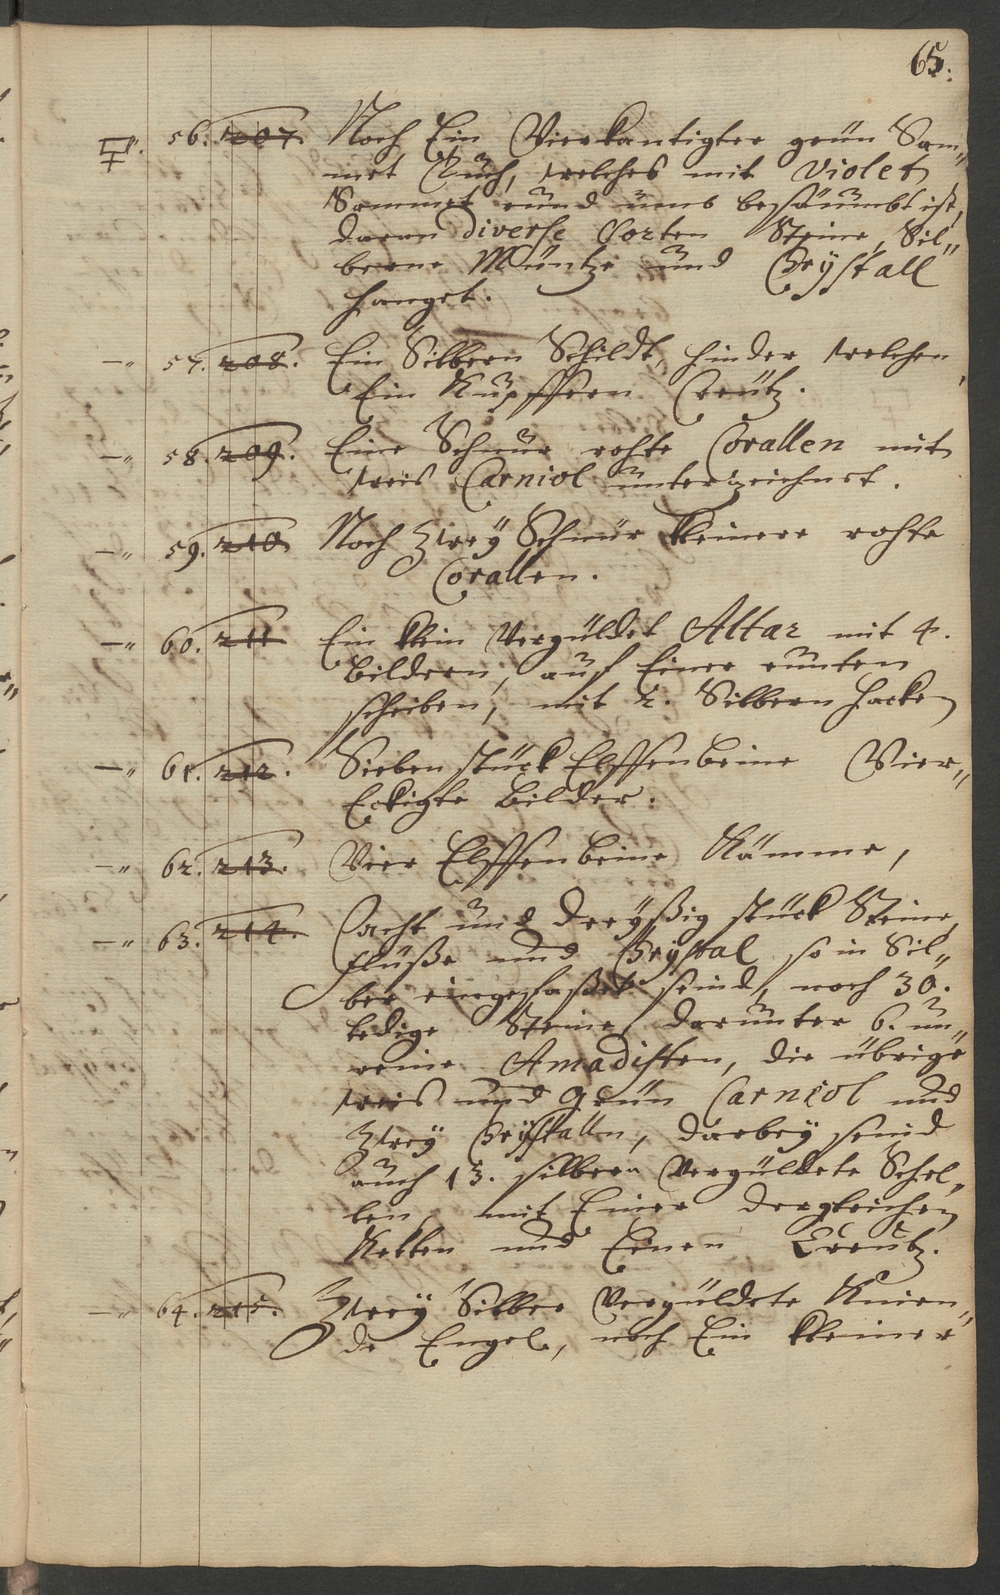 65.
56. 207. Noch Ein Vierkantigter grün Sam„
met Tuch, welches mit Violet
Sammet rund umb besäumbt ist,
daran diverse Sorten Steine, Sil„
berne Müntze und Crystall
hanget.
—„ 57. 208. Ein Silbern Schildt, hinder welchen
Ein Kupffern Creütz.
—„ 58. 209. Eine Schnur rohte Corallen mit
weis Carniol unterzeichnet.
—„ 59. 210 Noch Zwey Schnür kleinere rohte
Corallen.
—„ 60. 211 Ein klein Vergüldet Altar mit 4.
Bildern, auf Einer runten
scheiben, mit 2. Silbern hacken
—„ 61. 212. Sieben stück Elffenbeine Vier„
Eckigte Bilder.
—„ 62. 213. Vier Elffenbeine Kämme,
—„ 63. 214. Acht und dreyßig stück Steine,
flüße und Crystal so in Sil„
ber eingefaßet seind, noch 30.
ledige Steine, darunter 6. un„
reine Amadisten, die übrige
weis und grün Carniol und
Zwey Crystallen, darbey seind
auch 13. silbern Vergüldete Schel„
len, mit Einer dergleichen
Ketten und Einen Creutz.
—„ 64. 215. Zwey Silber Vergüldete Knien„
de Engel, noch Ein kleiner